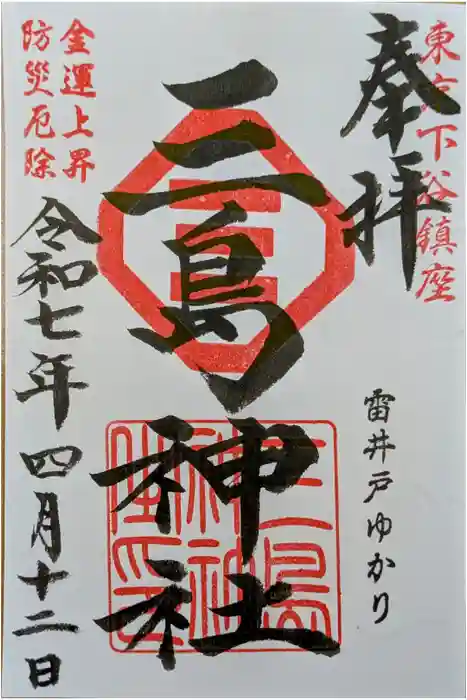 東京下谷鎮座
奉拝
雷井戸ゆかり
三島神社
金運上昇
防災厄除
令和七年四月十二日